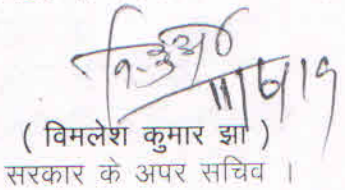 11/6/19
( विमलेश कुमार झा )
सरकार के अपर सचिव ।